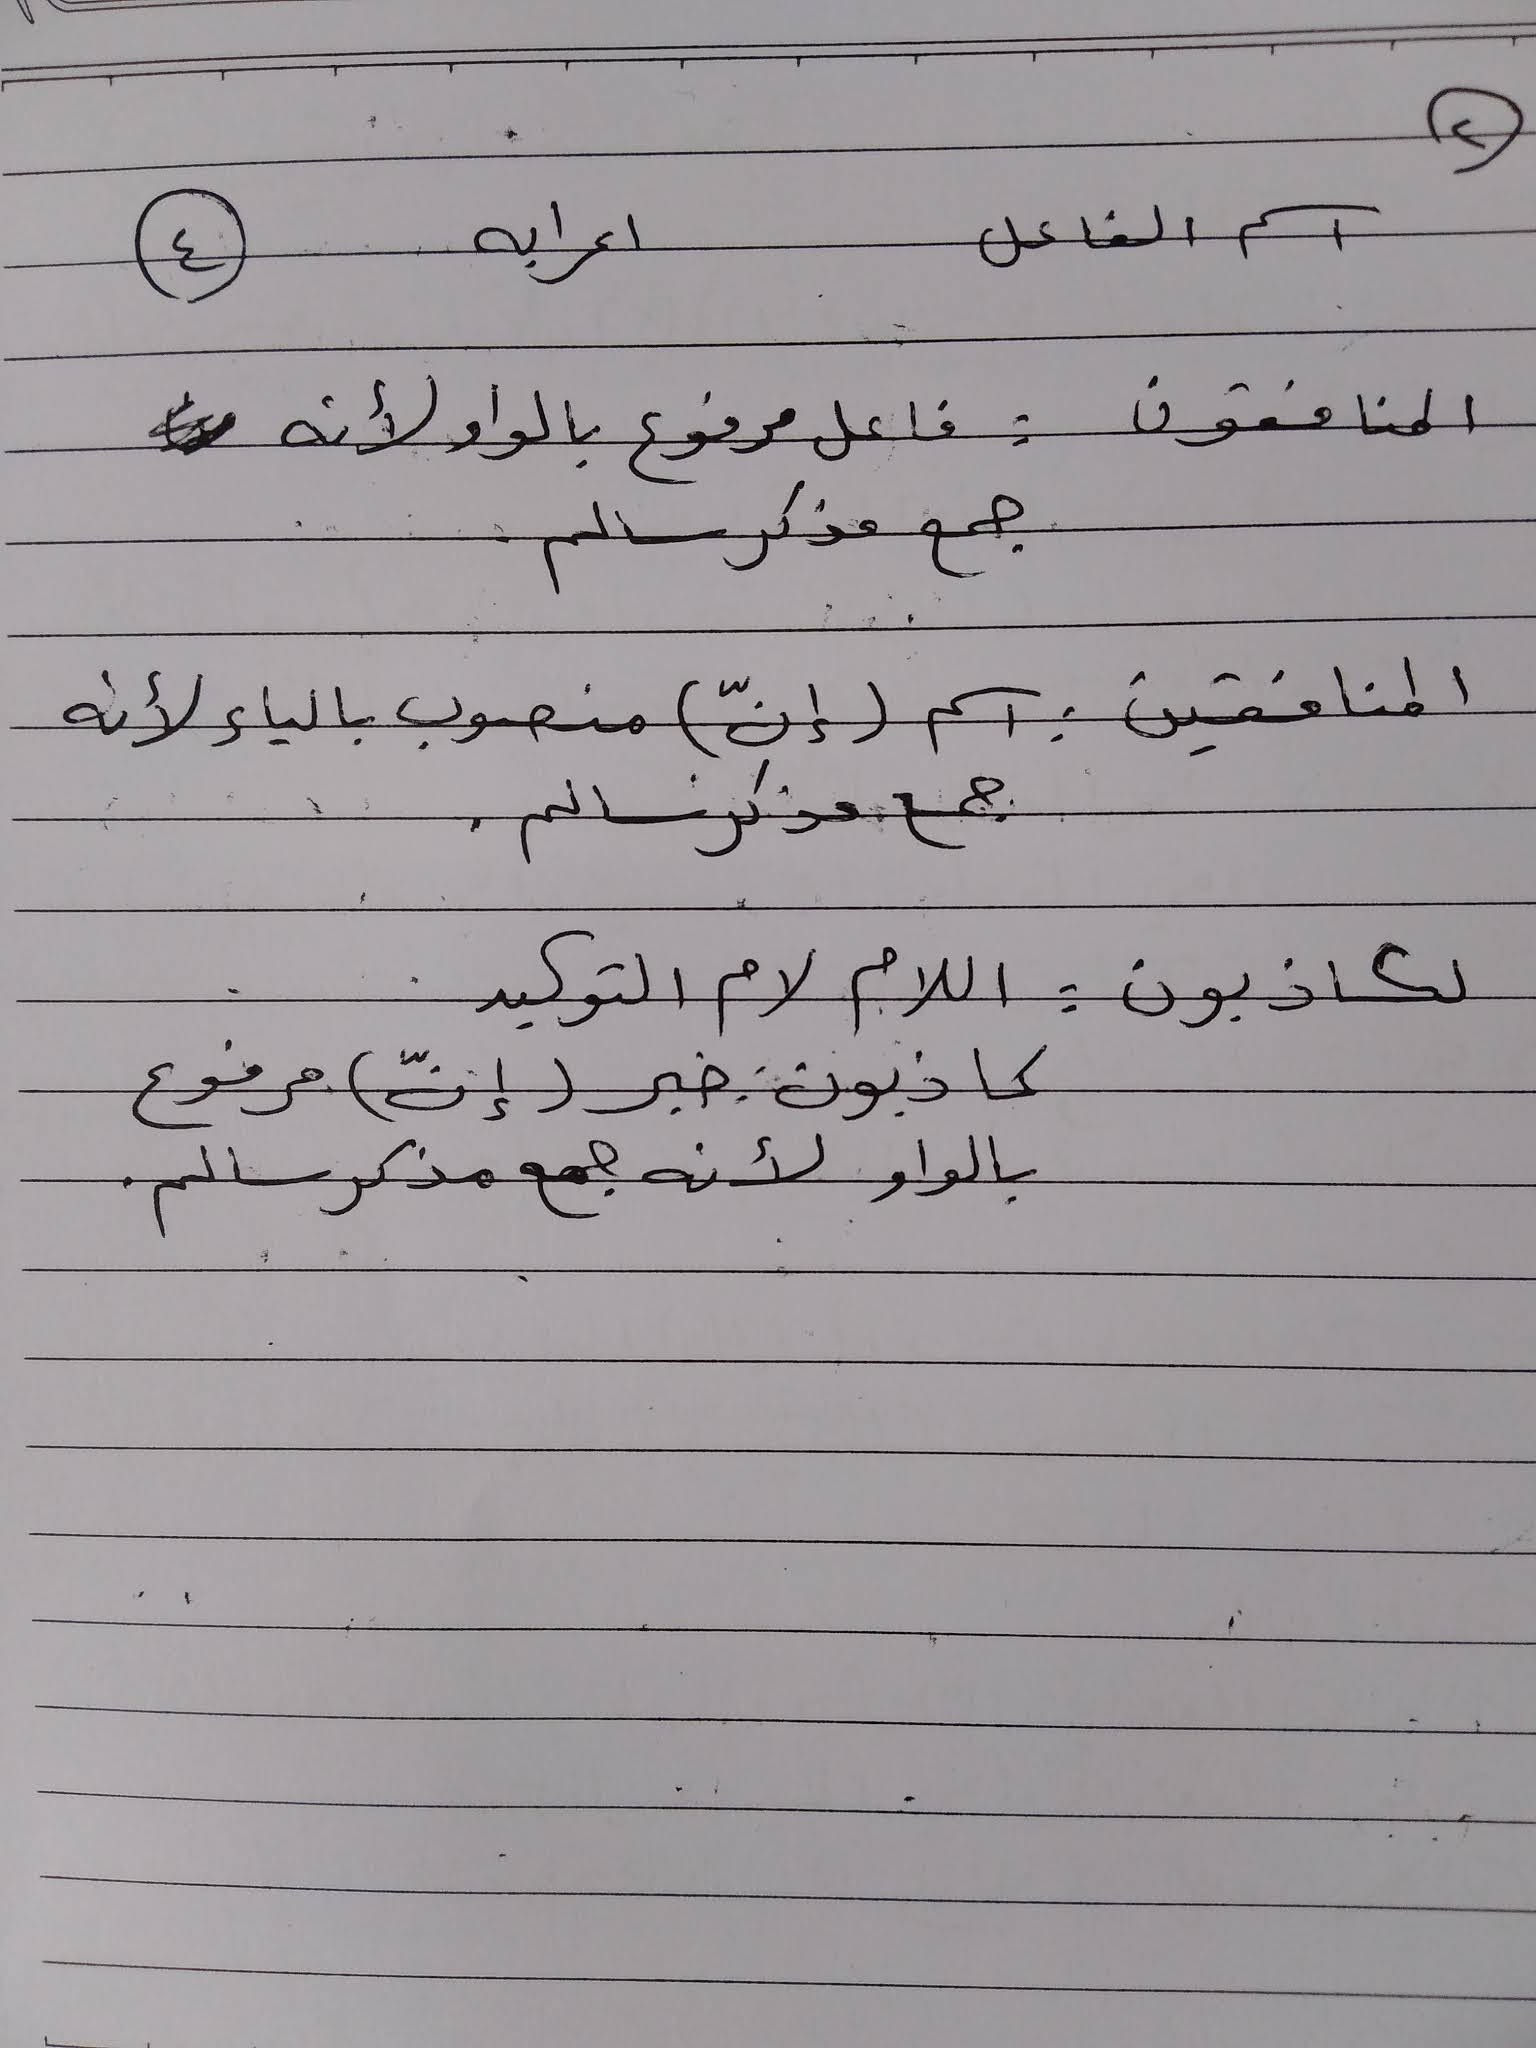 ٢
اسم الفاعل اعرابه ٤
المنافقون : فاعل مرفوع بالواو لأنه
جمع مذكر سالم .
المنافقين : اسم (إنّ) منصوب بالياء لأنه
جمع مذكر سالم .
لكاذبون : اللام لام التوكيد
كاذبون : خبر (إنّ) مرفوع
بالواو لأنه جمع مذكر سالم .